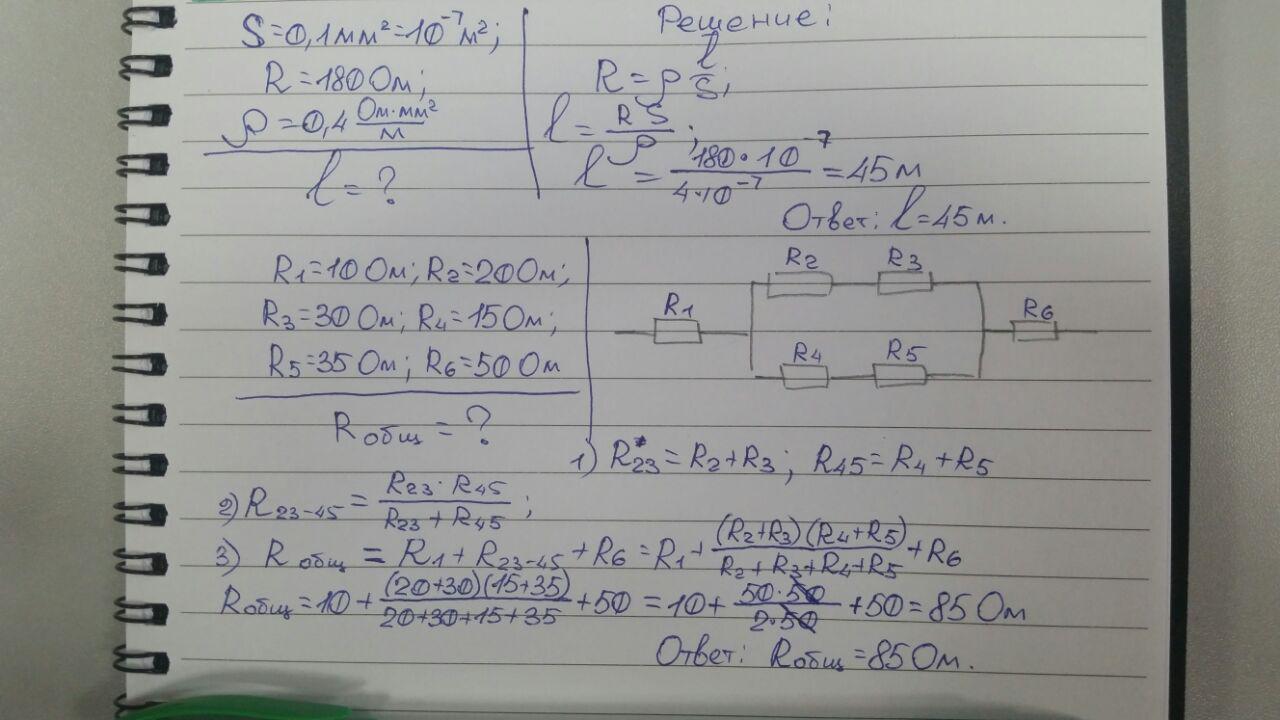 S=0,1мм²=10⁻⁷м²;
R=180 Ом;
ρ=0,4 Ом·мм²/м
l=?
Решение:
R=ρ l/S;
l=RS/ρ;
l=180·10⁻⁷/4·10⁻⁷=45м
Ответ: l=45м.
R1=10 Ом; R2=20 Ом;
R3=30 Ом; R4=15 Ом;
R5=35 Ом; R6=50 Ом
Rобщ=?
R2 R3
R1 R6
R4 R5
1) R23=R2+R3; R45=R4+R5
2) R23-45=R23·R45/R23+R45;
3) Rобщ=R1+R23-45+R6=R1+(R2+R3)(R4+R5)/R2+R3+R4+R5+R6
Rобщ=10+(20+30)(15+35)/20+30+15+35+50=10+50·50/2·50+50=85 Ом
Ответ: Rобщ=85 Ом.